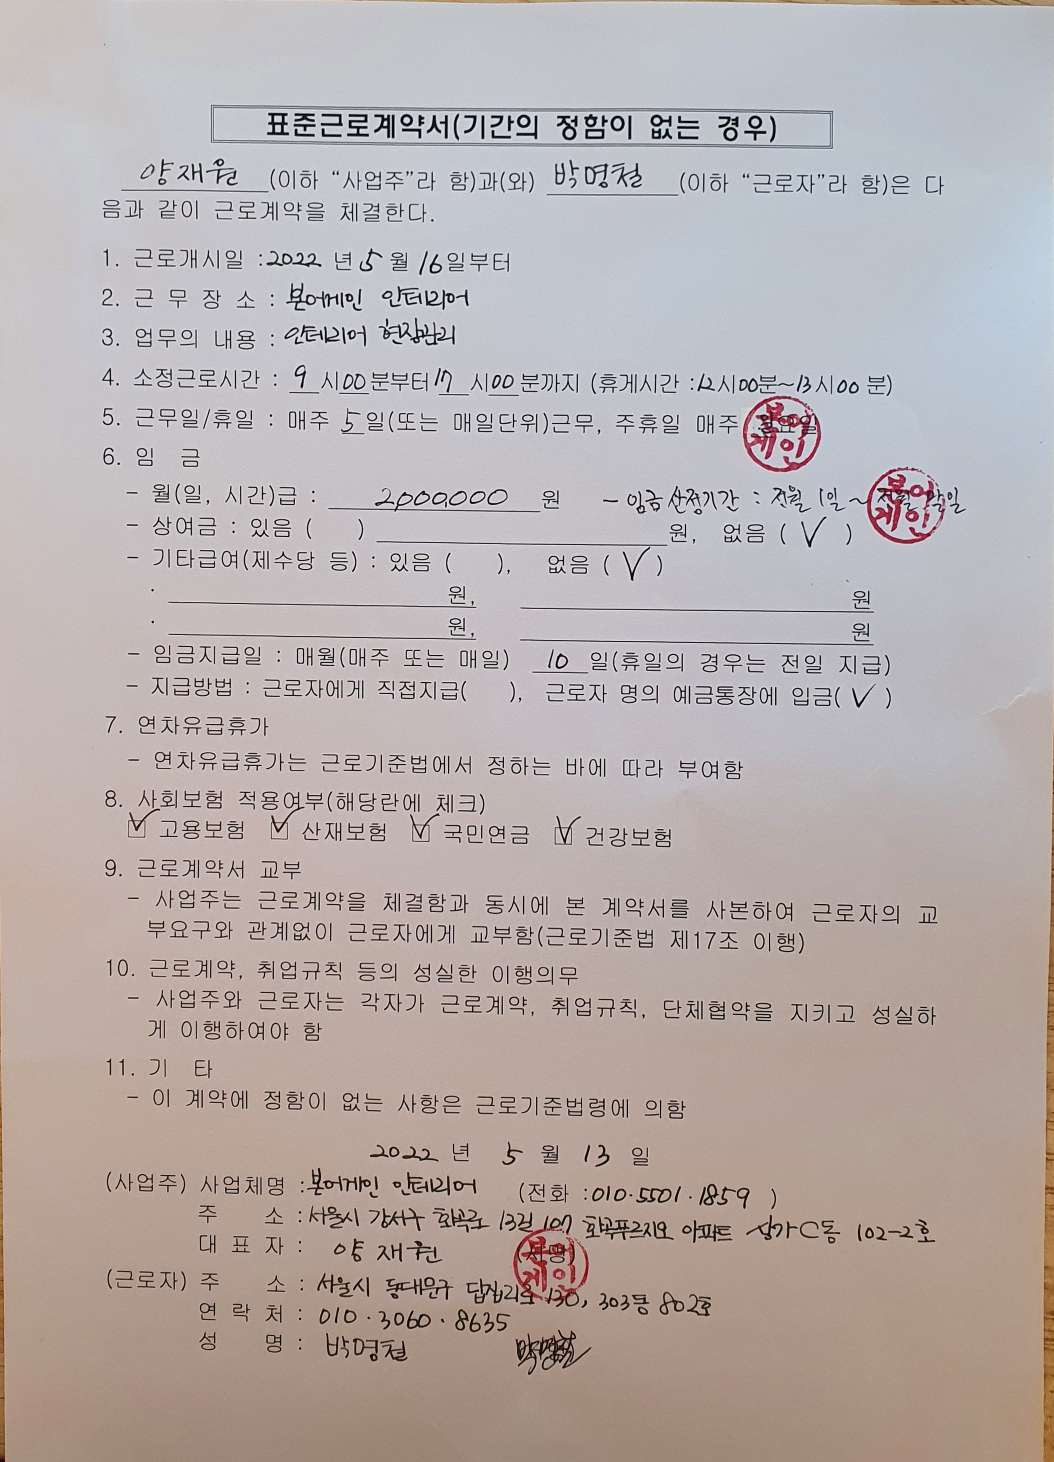 표준근로계약서(기간의 정함이 없는 경우)
양재원 (이하 “사업주”라 함)과(와) 박명철 (이하 “근로자”라 함)은 다
음과 같이 근로계약을 체결한다.
1. 근로개시일 : 2022 년 5 월 16일부터
2. 근 무 장 소 : 본어게인 인테리어
3. 업무의 내용 : 인테리어 현장관리
4. 소정근로시간 : 9 시 00 분부터 17 시 00 분까지 (휴게시간 : 12시00분~13시00 분)
5. 근무일/휴일 : 매주 5 일(또는 매일단위)근무, 주휴일 매주
본어게인
6. 임 금
- 월(일, 시간)급 : 2,000,000 원 - 임금 산정기간 : 전월 1일 ~
본어게인
- 상여금 : 있음 ( ) 원, 없음 ( √ )
- 기타급여(제수당 등) : 있음 ( ), 없음 ( √ )
· 원, 원
· 원, 원
- 임금지급일 : 매월(매주 또는 매일) 10 일(휴일의 경우는 전일 지급)
- 지급방법 : 근로자에게 직접지급( ), 근로자 명의 예금통장에 입금( √ )
7. 연차유급휴가
- 연차유급휴가는 근로기준법에서 정하는 바에 따라 부여함
8. 사회보험 적용여부(해당란에 체크)
☑ 고용보험 ☑ 산재보험 ☑ 국민연금 ☑ 건강보험
9. 근로계약서 교부
- 사업주는 근로계약을 체결함과 동시에 본 계약서를 사본하여 근로자의 교
부요구와 관계없이 근로자에게 교부함(근로기준법 제17조 이행)
10. 근로계약, 취업규칙 등의 성실한 이행의무
- 사업주와 근로자는 각자가 근로계약, 취업규칙, 단체협약을 지키고 성실하
게 이행하여야 함
11. 기 타
- 이 계약에 정함이 없는 사항은 근로기준법령에 의함
2022 년 5 월 13 일
(사업주) 사업체명 : 본어게인 인테리어 (전화 : 010·5501·1859 )
주 소 : 서울시 강서구 화곡로 13길 107 화곡푸르지오 아파트 상가C동 102-2호
대 표 자 : 양 재 원 (서명)
본어게인
(근로자) 주 소 : 서울시 동대문구 답십리로 130, 303동 802호
연 락 처 : 010·3060·8635
성 명 : 박명철 박명철